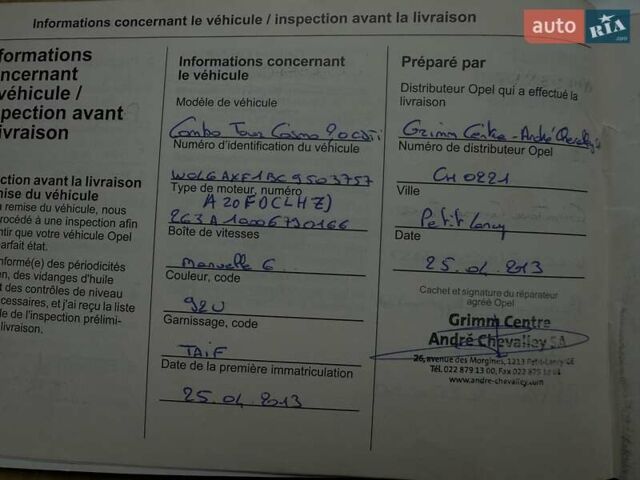 Informations concernant le véhicule / inspection avant la livraison
auto RIA .com
nformations
oncernant
véhicule /
spection avant
livraison
ection avant la livraison
mise du véhicule
a remise du véhicule, nous
rocédé à une inspection afin
ntir que votre véhicule Opel
arfait état.
nformé(e) des périodicités
en, des vidanges d'huile
et des contrôles de niveau
cessaires, et j'ai reçu la liste
le de l'inspection prélimi-
livraison.
Informations concernant
le véhicule
Modèle de véhicule
Combo Tour Cosmo 2.0 CDTi
Numéro d'identification du véhicule
W0L6AXF1BC9503757
Type de moteur, numéro
A20FD(LHZ)
263A10006790166
Boîte de vitesses
Manuelle 6
Couleur, code
92U
Garnissage, code
TAIF
Date de la première immatriculation
25.04.2013
Préparé par
Distributeur Opel qui a effectué la
livraison
Grimm Centre - André Chevalley
Numéro de distributeur Opel
CH 0221
Ville
Petit Lancy
Date
25.04.2013
Cachet et signature du réparateur
agréé Opel
Grimm Centre
André Chevalley SA
26, avenue des Morgines, 1213 Petit-Lancy GE
Tél. 022 879 13 00, Fax 022 879
www.andre-chevalley.com